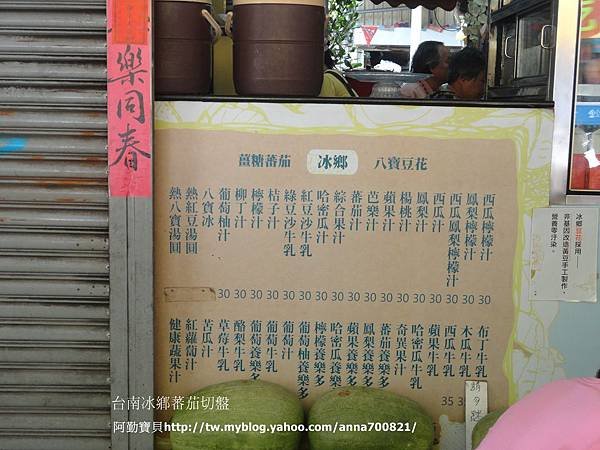 樂同春
薑糖蕃茄 冰鄉 八寶豆花
西瓜檸檬汁
鳳梨檸檬汁
西瓜鳳梨檸檬汁
西瓜汁
鳳梨汁
楊桃汁
蘋果汁
芭樂汁
蕃茄汁
綜合果汁
哈密瓜汁
紅豆沙牛乳
綠豆沙牛乳
桔子汁
檸檬汁
柳丁汁
葡萄柚汁
八寶冰
熱紅豆湯圓
熱八寶湯圓
30 30 30 30 30 30 30 30 30 30 30 30 30 30 30 30
布丁牛乳
木瓜牛乳
西瓜牛乳
蘋果牛乳
哈密瓜牛乳
奇異果汁
蕃茄養樂多
鳳梨養樂多
蘋果養樂多
哈密瓜養樂多
檸檬養樂多
葡萄柚養樂多
葡萄汁
葡萄牛乳
葡萄養樂多
酪梨牛乳
草莓牛乳
苦瓜汁
紅蘿蔔汁
健康蔬果汁
35
冰鄉豆花採用
非基因改造黃豆手工製作,
營養零汙染。
台南冰鄉蕃茄切盤
阿勤寶貝http://tw.myblog.yahoo.com/anna700821/